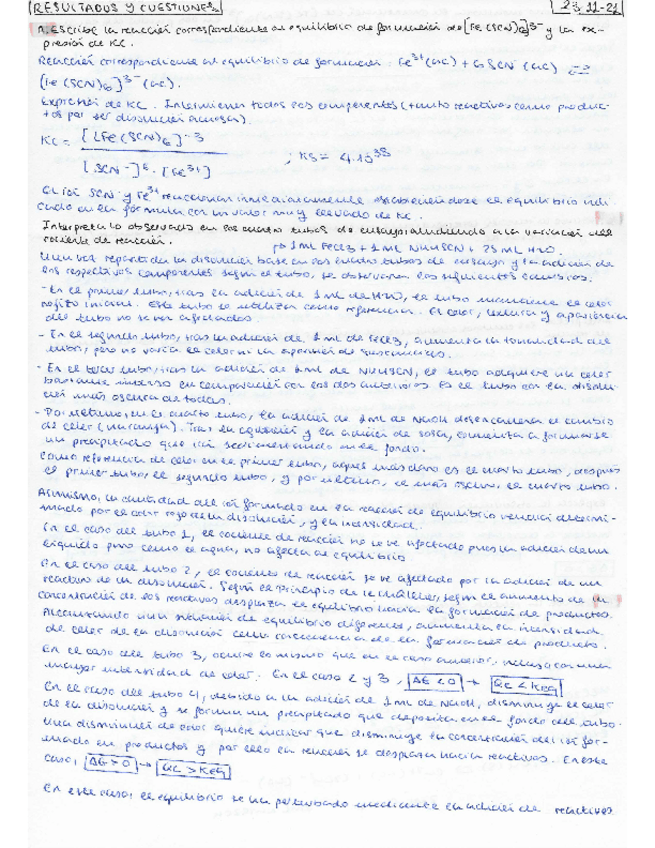 RESULTADOS Y CUESTIONES
23-11-21
1. Escribe la reacción correspondiente al equilibrio de formación de [Fe(SCN)6]3- y la ex-
presión de Kc.
Reacción correspondiente al equilibrio de formación: Fe3+(ac) + 6 SCN-(ac) ⇌
[Fe(SCN)6]3-(ac).
Expresión de Kc. Intervienen todos los componentes (tanto reactivos como produc-
tos por ser disolución acuosa).
Kc = [[Fe(SCN)6]-3 / [SCN-]6 · [Fe3+] ; K5 =
SCN- y Fe3+ reaccionan inmediatamente estableciéndose el equilibrio indi-
cado en la fórmula, con un valor muy elevado de Kc.
Interpreta lo observado en los cuatro tubos de ensayo aludiendo a la variación del
cociente de reacción.
1 mL FeCl3 + 1 mL NH4SCN + 25 mL H2O.
Una vez repartida la disolución base en los cuatro tubos de ensayo y la adición de
los respectivos componentes según el tubo, se observaron los siguientes cambios.
- En el primer tubo, tras la adición de 1 mL de H2O, el tubo mantiene el color
rojizo inicial. Este tubo se utiliza como referencia. El color, textura y apariencia
del tubo no se ven afectados.
- En el segundo tubo, tras la adición de 1 mL de FeCl3, aumenta la tonalidad del
tubo, pero no varía el color ni la aparición de sustancias.
- En el tercer tubo, tras la adición de 1 mL de NH4SCN, el tubo adquiere un color
bastante intenso en comparación con los dos anteriores. Es el tubo con la disolu-
ción más oscura de todas.
- Por último, en el cuarto tubo, la adición de 1 mL de NaOH desencadena el cambio
de color (naranja). Tras la agitación y la adición de sosa, comienza a formarse
un precipitado que irá sedimentando en el fondo.
Como referencia de color en el primer tubo, aquel más claro es el cuarto tubo, después
el primer tubo, el segundo tubo, y por último, el más oscuro el cuarto tubo.
Asimismo, la cantidad del ión formado en la reacción de equilibrio vendrá determi-
nado por el color rojo de la disolución, y la intensidad.
En el caso del tubo 1, el cociente de reacción no se ve afectado pues la adición de un
líquido puro como el agua, no afecta al equilibrio
En el caso del tubo 2, el cociente de reacción se ve afectado por la adición de un
reactivo de la disolución. Según el principio de Le Châtelier, según el aumento de la
concentración de los reactivos desplaza el equilibrio hacia la formación de productos.
Alcanzando una situación de equilibrio diferente, aumenta la intensidad
de color de la disolución como consecuencia de la formación de producto.
En el caso del tubo 3, ocurre lo mismo que en el caso anterior, incluso con una
mayor intensidad de color. En el caso 2 y 3, ΔG < 0 → Qc < Keq
En el caso del tubo 4, debido a la adición de 1 mL de NaOH, disminuye el color
de la disolución y se forma un precipitado que deposita en el fondo del tubo.
Una disminución de color quiere indicar que disminuye la concentración del ión for-
mado en productos y por ello la reacción se desplaza hacia reactivos. En este
caso, ΔG > 0 → Qc > Keq
En este caso, el equilibrio se ha perturbado mediante la adición de reactivos